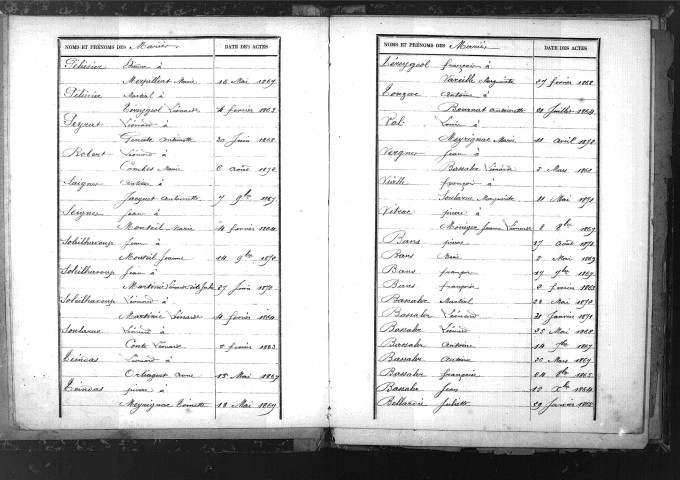 NOMS ET PRÉNOMS DES Mariés. DATE DES ACTES
Pélissier Etienne à
Marie 16 Mai 1867
Pélissier Martial à
Léonarde 4 fevrier 1868
Peyrat Léonard à
Antoinette 30 Juin 1868
Robert Léonard à
Combes Marie 6 Août 1870
Saigner Antoine à
Jacquet Antoinette 7 9bre 1867
Seigner Jean à
Monteil Marie 4 fevrier 1864
Soleilhavoup Jean à
Monteil Jeanne 14 9bre 1870
Soleilhavoup Jean à
Martinie Léonarde dite Julie 27 Juin 1870
Soleilhavoup Léonard à
Martinie Léonarde 4 fevrier 1864
Soularue Léonard à
Conti Léonarde 5 fevrier 1863
Teindas Léonard à
Orliaguet Anne 15 Mai 1867
Teindas pierre à
Meyrignac Toinette 18 Mai 1869
NOMS ET PRÉNOMS DES Mariés DATE DES ACTES
françois à
Vareille Marguerite 27 fevrier 1868
Tonzac Antoine à
Antoinette 20 Juillet 1864
Val Louis à
Meyrignac Marie 11 avril 1870
Vergner Jean à
Bassaler Léonarde 5 Mars 1860
françois à
Soularue Marguerite 11 Mai 1870
Vibrac pierre à
Jeanne Léonarde 2 8bre 1867
Bans pierre 27 Août 1872
Bans Marie 5 Mai 1869
Bans françois 17 7bre 1867
Bans françoise 9 fevrier 1863
Bassaler Martial 22 Mai 1870
Bassaler Léonard 21 Janvier 1870
Bassaler Léonard 25 Mai 1868
Bassaler Antoine 14 7bre 1867
Bassaler Antoine 30 Mars 1867
Bassaler françoise 24 8bre 1865
Bassaler Jean 10 Xbre 1864
Bellardie Juliette 29 Janvier 1865